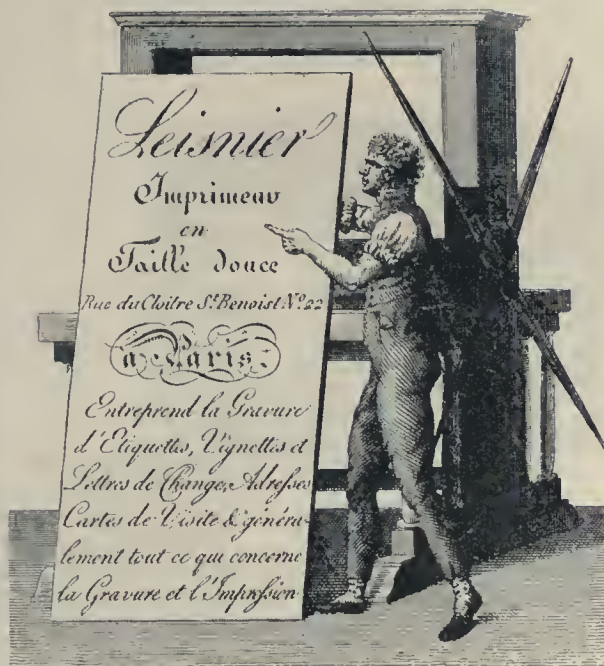 Leisnier
Imprimeur
en
Taille douce
Rue du Cloitre St. Benoist No. 22
a Paris
Entreprend la Gravure
d'Etiquettes, Vignettes et
Lettres de Change, Adresses
Cartes de Visite & généra-
lement tout ce qui concerne
la Gravure et l'Impression